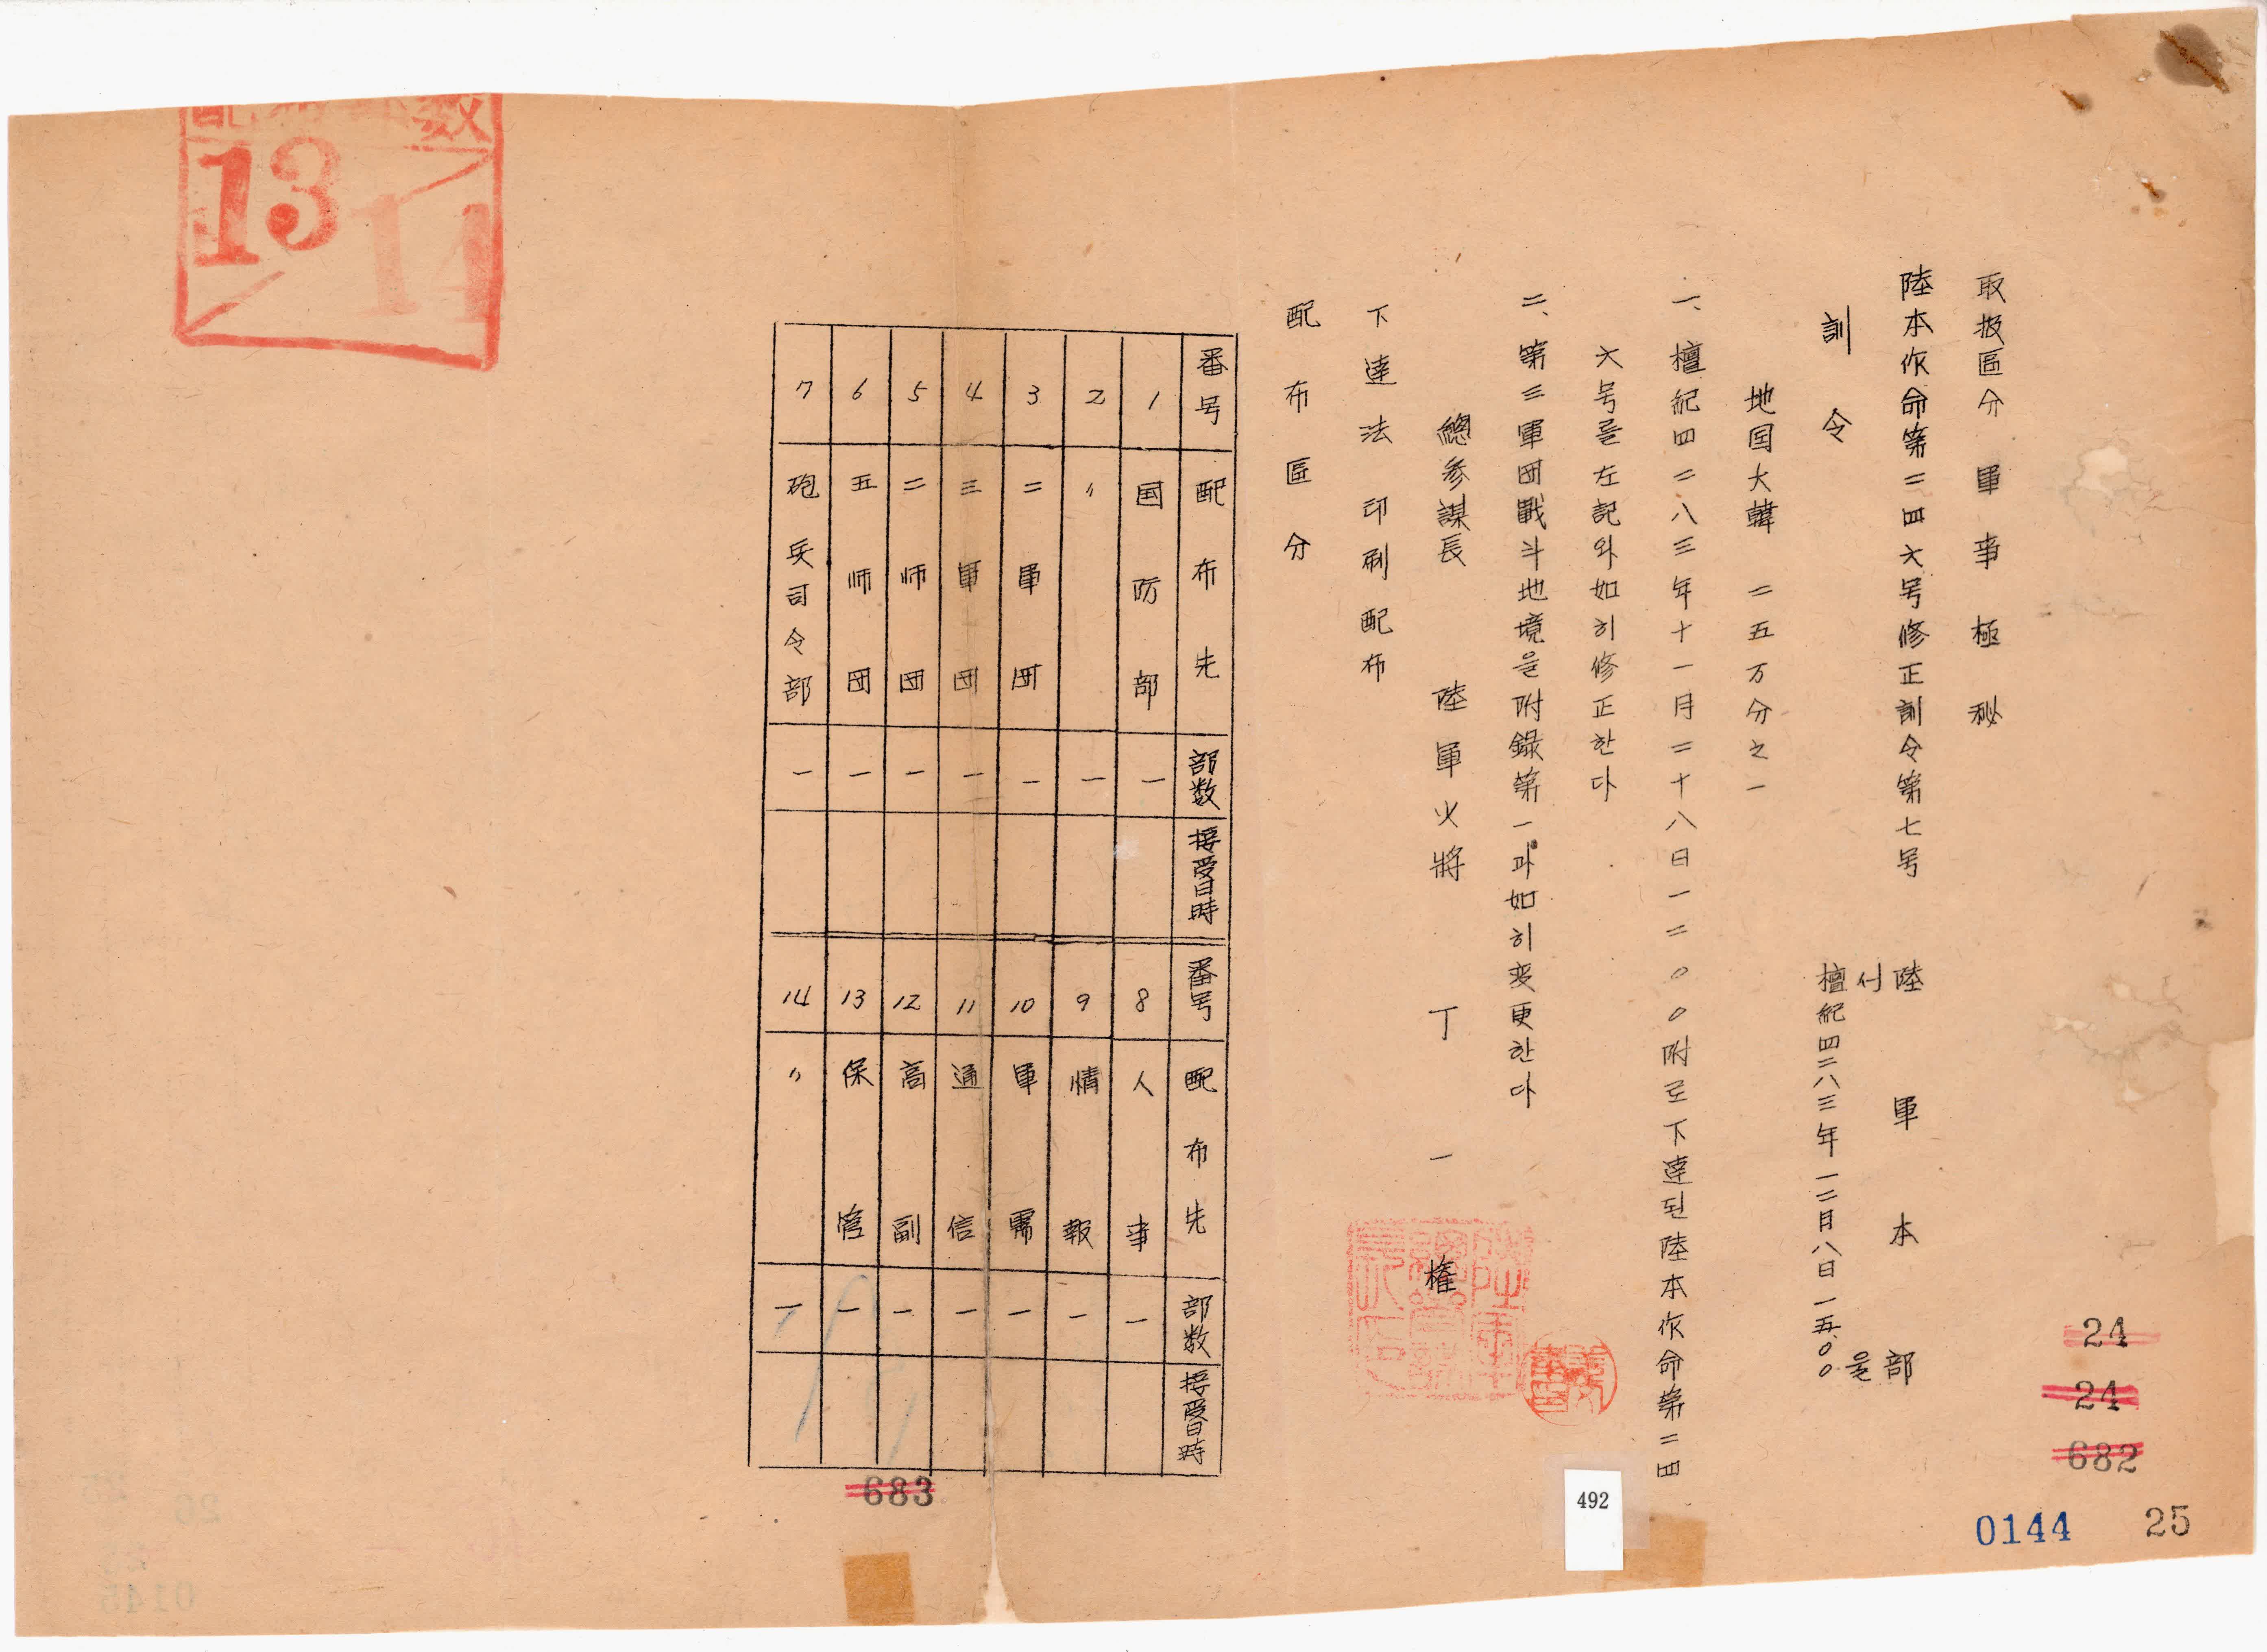 取扱區分 軍事極秘
陸本作命第二四六号修正訓令第七号
陸軍本部
서울
檀紀四二八三年一二月八日一五、〇〇
訓令
地国大韓 二五万分之一
一、檀紀四二八三年十一月二十八日一二〇〇附로下達된陸本作命第二四
六号를左記와如히修正한다
二、第三軍团戰斗地境을附錄第一과如히変更한다
總參謀長 陸軍少將 丁一權
下達法 印刷配布
配布區分
番号 配布先 部数 接受日時 番号 配布先 部数 接受日時
1 国防部 一 8 人事 一
2 〃 一 9 情報 一
3 二軍团 一 10 軍需 一
4 三軍团 一 11 通信 一
5 二师团 一 12 高副 一
6 五师团 一 13 保管 一
7 砲兵司令部 一 14 〃 一
配布部数
13/14
24
24
682
0144 25
683
492